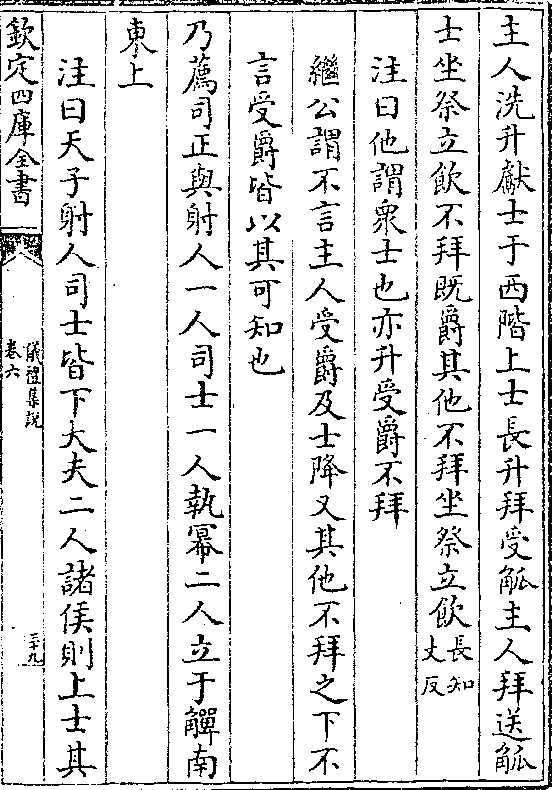 主人洗升獻士于西階上士長升拜受觚主人拜送觚
士坐祭立飲不拜既爵其他不拜坐祭立飲長知丈反
注曰他謂衆士也亦升受爵不拜
繼公謂不言主人受爵及士降又其他不拜之下不
言受爵皆以其可知也
乃薦司正與射人一人司士一人執冪二人立于觶南
東上
注曰天子射人司士皆下大夫二人諸侯則上士其
欽定四庫全書
儀禮集説
卷六
三十九